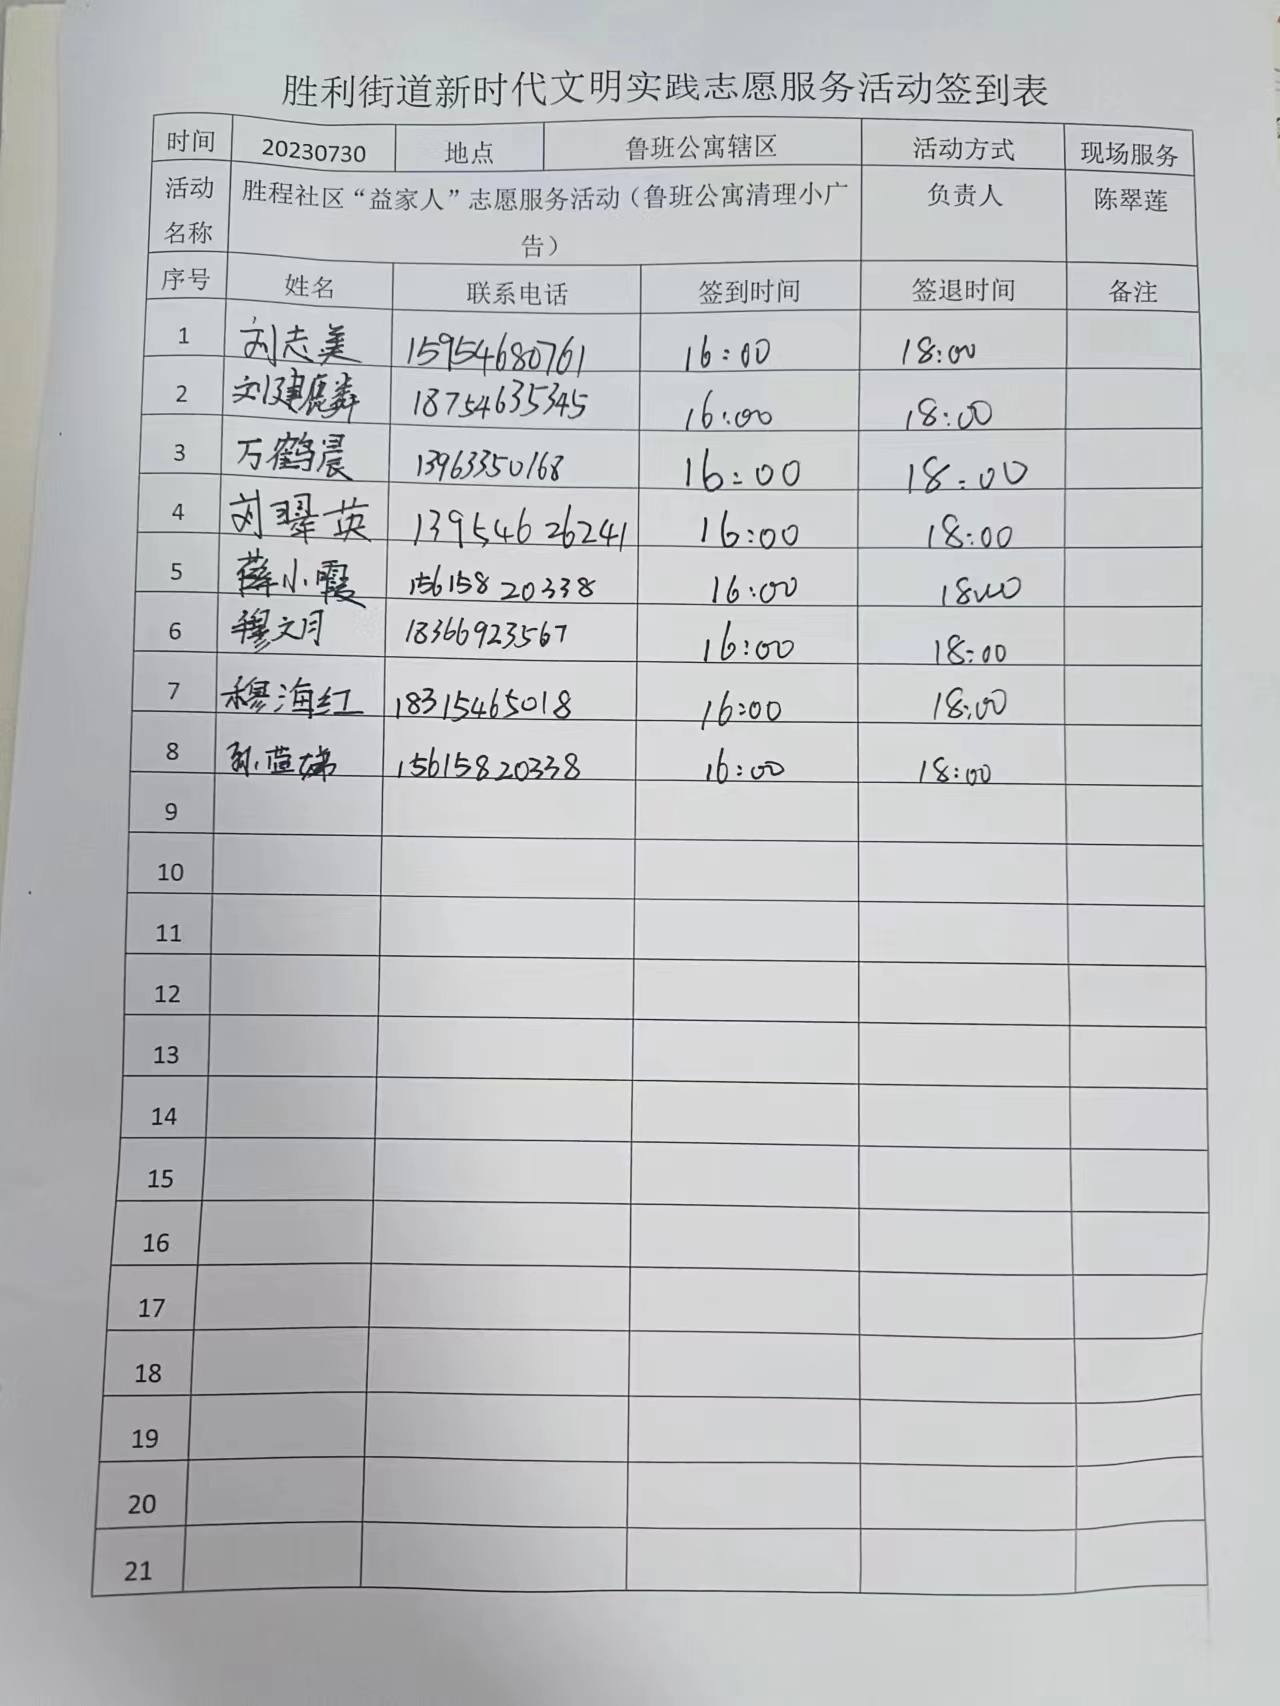 胜利街道新时代文明实践志愿服务活动签到表
时间 20230730 地点 鲁班公寓辖区 活动方式 现场服务
活动名称 胜程社区“益家人”志愿服务活动（鲁班公寓清理小广告） 负责人 陈翠莲
序号 姓名 联系电话 签到时间 签退时间 备注
1 刘志美 15954680761 16:00 18:00
2 刘建麟 18754635345 16:00 18:00
3 万鹤晨 13963350168 16:00 18:00
4 刘翠英 13954626241 16:00 18:00
5 薛小霞 15615820338 16:00 18:00
6 穆文月 18366923567 16:00 18:00
7 穆海红 18315465018 16:00 18:00
8 孙 15615820338 16:00 18:00
9
10
11
12
13
14
15
16
17
18
19
20
21